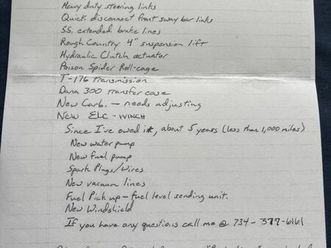 Heavy duty steering links
Quick disconnect front sway bar links
SS. extended brake lines
Rough Country 4" suspension lift
Hydraulic Clutch actuator
Poison Spider Roll-cage
T-176 Transmission
Dana 300 transfer case
New Carb. — needs adjusting
New ELC - WINCH
Since I've owed it, about 5 years (less than 1,000 miles)
New water pump
New Fuel pump
Spark Plugs/Wires
New vacuum lines
Fuel Pick up - fuel level sending unit.
New Windshield
If you have any questions call me @ 734-377-6161